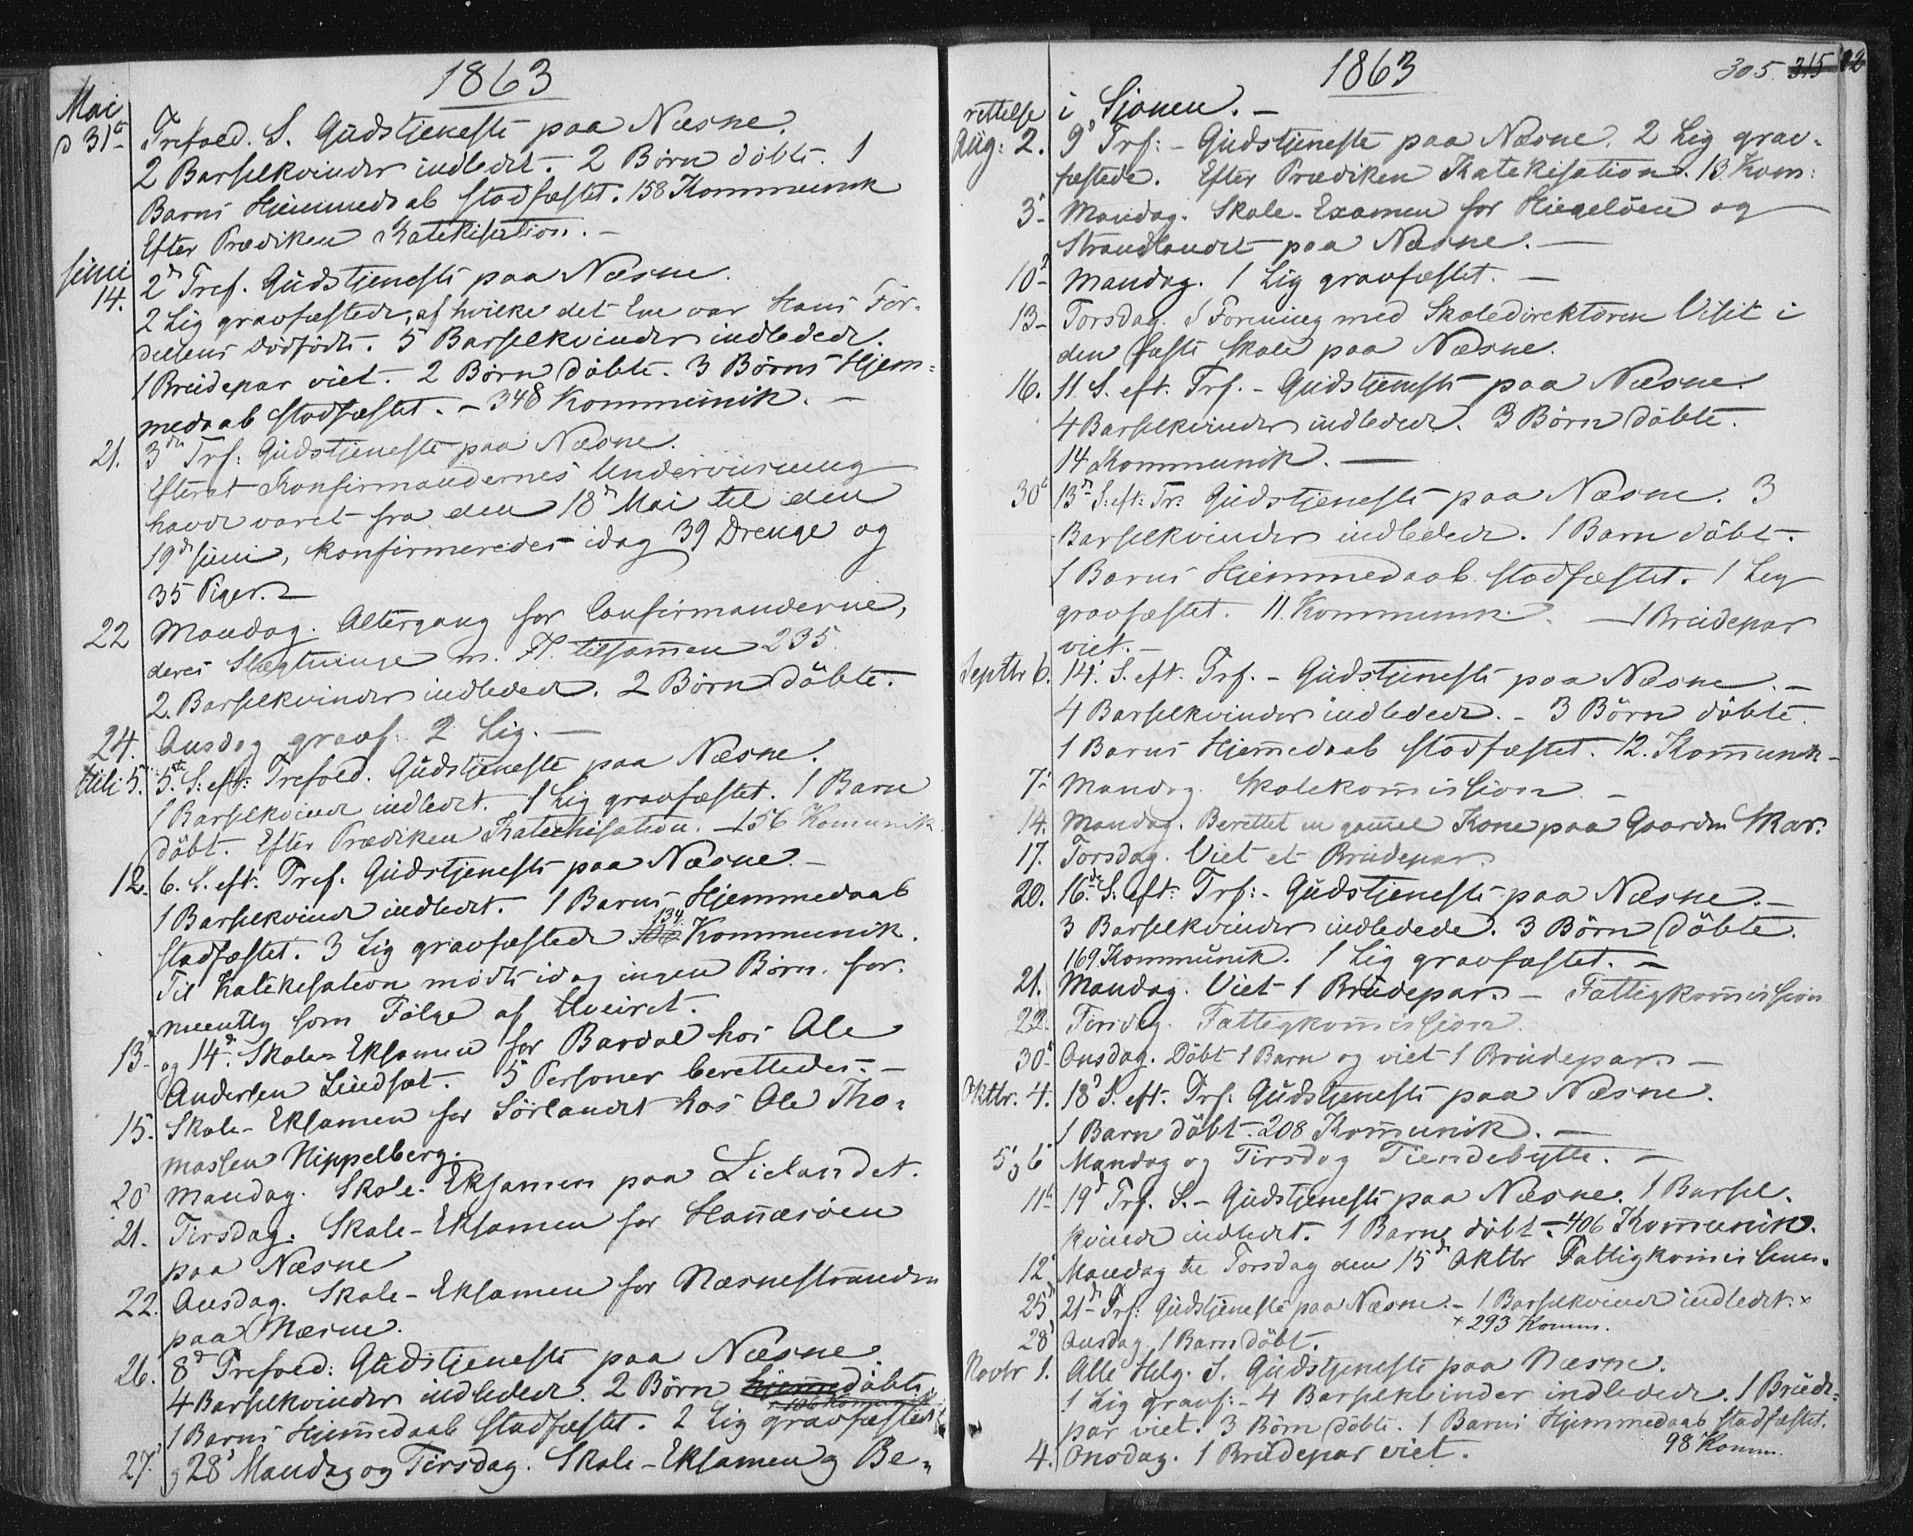 1863
Mai
d 31te Trefold. S. Gudstjeneste paa Næsne.
2 Barselkvinder indledet. 2 Børn døbte. 1
Barns Hjemmedaab stadfæstet. 158 Kommunik
Efter Prædiken Katekisation. —
Juni
14. 2den Tref. Gudstjeneste paa Næsne.
2 Lig gravfæstede, af hvilke det Ene var Hans
dødfødte. 5 Barselkvinder indledede.
1 Brudepar viet. — 2 Børn døbte. 3 Børns Hjem-
medaab stadfæstet. — 348 Kommunik. —
21. 3die Trf: Gudstjeneste paa Næsne.
Efterat Konfirmandernes Underviisning
havde varet fra den 18de Mai til den
19de Juni, konfirmeredes idag 39 Drenge og
35 Piger. —
22 Mandag. Altergang for Confirmanderne,
deres Slægtninge m. Fl. tilsammen 235.
2. Barselkvinder indledede. 2 Børn døbte.
24. Onsdag gravf. 2 Lig. —
Juli 5. 5te S. eft: Trefold. Gudstjeneste paa Næsne.
1 Barselkvinde indledet. 1 Lig gravfæstet. 1 Barn
døbt. Efter Prædiken Katechisation. — 156 Komunik.
12. 6. S. eft. Tref. Gudstjeneste paa Næsne. —
1 Barselkvinde indledet. 1 Barns Hjemmedaab
stadfæstet. 3 Lig gravfæstede 134 Kommunik.
Til Katekisation mødte idag ingen Børn. for-
meentlig som Følge af Uveiret.
13 og 14d. Skole-Eksamen for Bardal hos Ole
Andersen Lindset. 5 Personer berettedes. —
15. Skole-Eksamen for Sørlandet hos Ole Tho-
massen Hippelberg.
20 Mandag. Skole-Eksamen paa Lielandet.
21. Tirsdag. Skole-Eksamen for Hannæsøen
paa Næsne
22. Onsdag. Skole-Eksamen for Næsnestranden
paa Næsne.
26. 8d Trefold: Gudstjeneste paa Næsne
4 Barselkvinder indledede. 2 Børn hjemmedøbte
1 Barns Hjemmedaab stadfæstet. 2 Lig gravfæstede
27. og 28d Mandag og Tirsdag. Skole-Eksamen og Be-
1863
305. 315
rettelse i Sjonen. —
Aug: 2. 9d Trf: — Gudstjeneste paa Næsne. 2 Lig grav-
fæstede. Efter Prædiken Katekisation. 13 Kom:
3. Mandag. Skole-Examen for Hugeløen og
Strandlandet paa Næsne. —
10. Mandag. 1 Lig gravfæstet. —
13 — Torsdag. I Forening med Skoledirektøren Visit i
den faste Skole paa Næsne.
16. 11 S. eft. Trf. — Gudstjeneste paa Næsne.
4 Barselkvinder indledede. 3 Børn døbte.
14 Kommunik. —
30 13de S. eft: Tr: Gudstjeneste paa Næsne. 3
Barselkvinder indledede. 1 Barn døbt. —
1 Barns Hjemmedaab stadfæstet. 1 Lig
gravfæstet. 11. Kommunik. — 1 Brudepar
viet. —
Septbr 6. 14. S. eft. Trf. — Gudstjeneste paa Næsne. —
4 Barselkvinder indledede. — 3 Børn døbte.
1 Barns Hjemmedaab stadfæstet. 12. Komunik —
7. Mandag Skolekommission —
14. Mandag. Berettet en gammel Kone paa Gaarden Skar.
17. Torsdag. Viet et Brudepar.
20. 16de S. eft: Trf: — Gudstjeneste paa Næsne. —
3 Barselkvinder indledede. 3 Børn døbte.
169 Kommunik. 1 Lig gravfæstet. —
21. Mandag. Viet 1 Brudepar. — Fattigkommission
22. Tirsdag. Fattigkommission.
30. Onsdag. Døbt 1 Barn og viet 1 Brudepar. —
Oktbr. 4. 18d S. eft. Trf. Gudstjeneste paa Næsne.
1 Barn døbt. 208 Komunik. —
5 og 6 Mandag og Tirsdag Tiendebytte. —
11. 19d Trf. S. — Gudstjeneste paa Næsne. 1 Barsel-
kvinde indledet. 1 Barn døbt. — 406 Komunik.
12 Mandag til Torsdag den 15d Oktbr Fattigkommission.
25d 21de Trf: Gudstjeneste paa Næsne. — 1 Barselkvinde indledet. ×
× 293 Komm.
28 Onsdag 1 Barn døbt.
Novbr 1. Alle Helg. S. Gudstjeneste paa Næsne.
1 Lig gravf: — 4 Barselkvinder indledede. 1 Brude-
par viet. 3 Børn døbte. 1 Barns Hjemmedaab stadfæstet.
98 Komm.
4. Onsdag. 1 Brudepar viet.